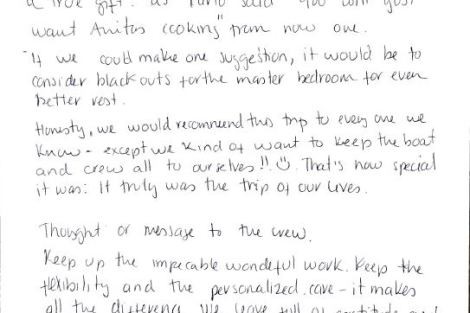 a true gift. as said "you will just
want Anitas cooking" from now one.
"If we could make one suggestion, it would be to
consider black outs for the master bedroom for even
better rest.
Honestly, we would recommend this trip to every one we
know - except we kind of want to keep the boat
and crew all to ourselves!! ☺ That's how special
it was. It truly was the trip of our lives.
Thought or message to the crew.
Keep up the impecable wonderful work. Keep the
flexibility and the personalized care - it makes
all the difference. We leave full of gratitude and